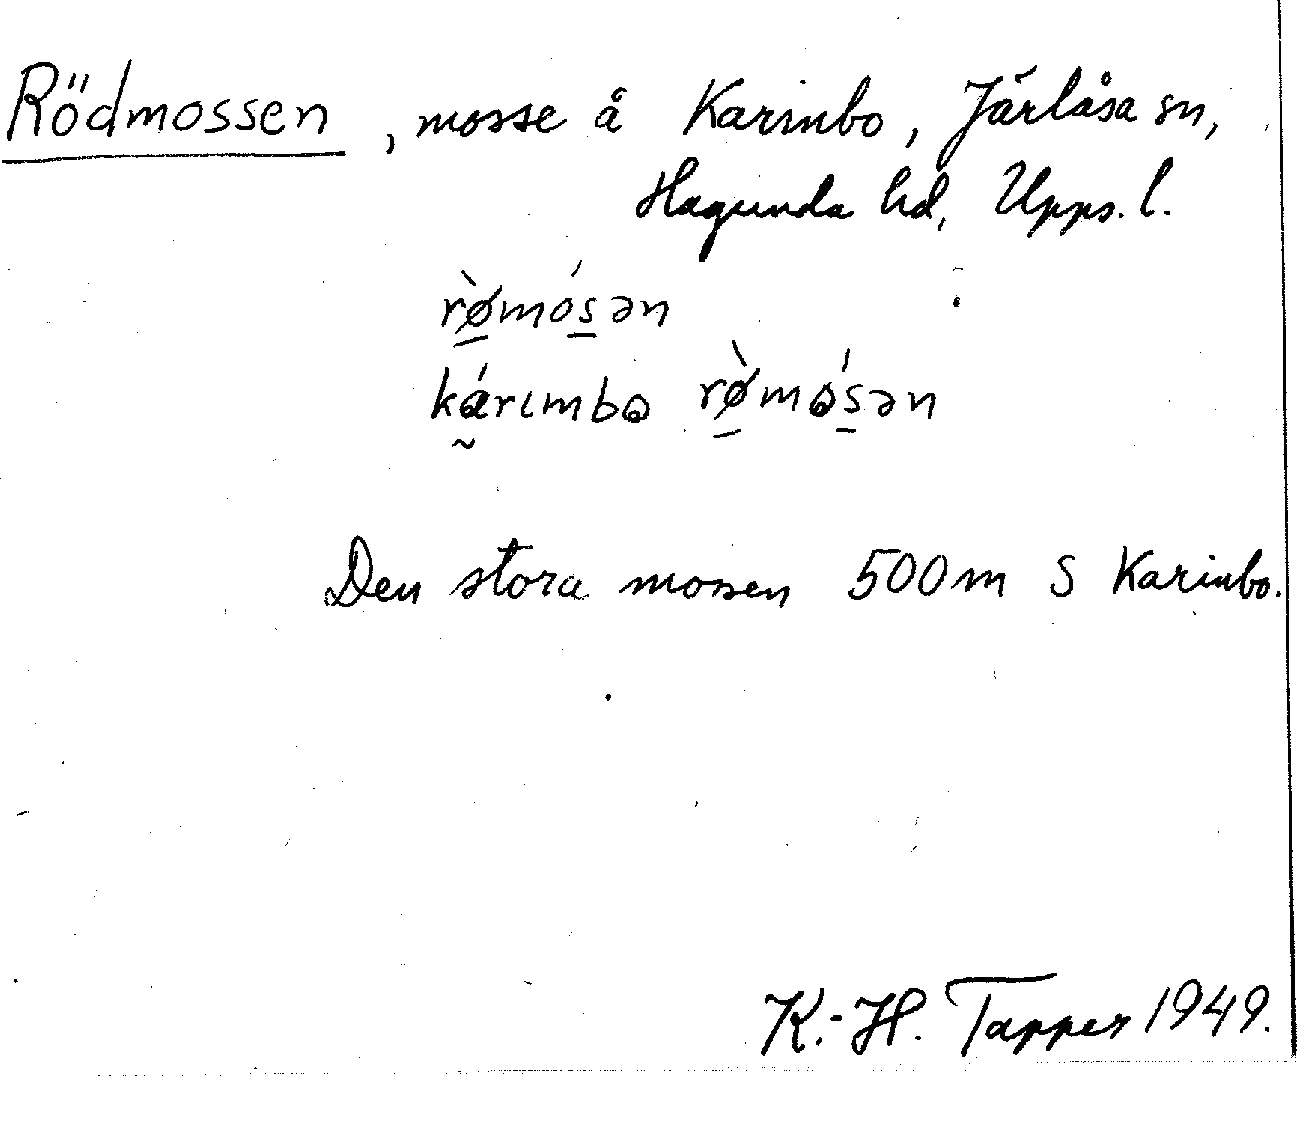 Rödmossen, mosse å Karinbo, Järlåsa sn,
Hagunda hd, Upps. l.
rø̀mósən
kárımbo rø̀mósən
Den stora mossen 500m S Karinbo.
K.-H. Tapper 1949.